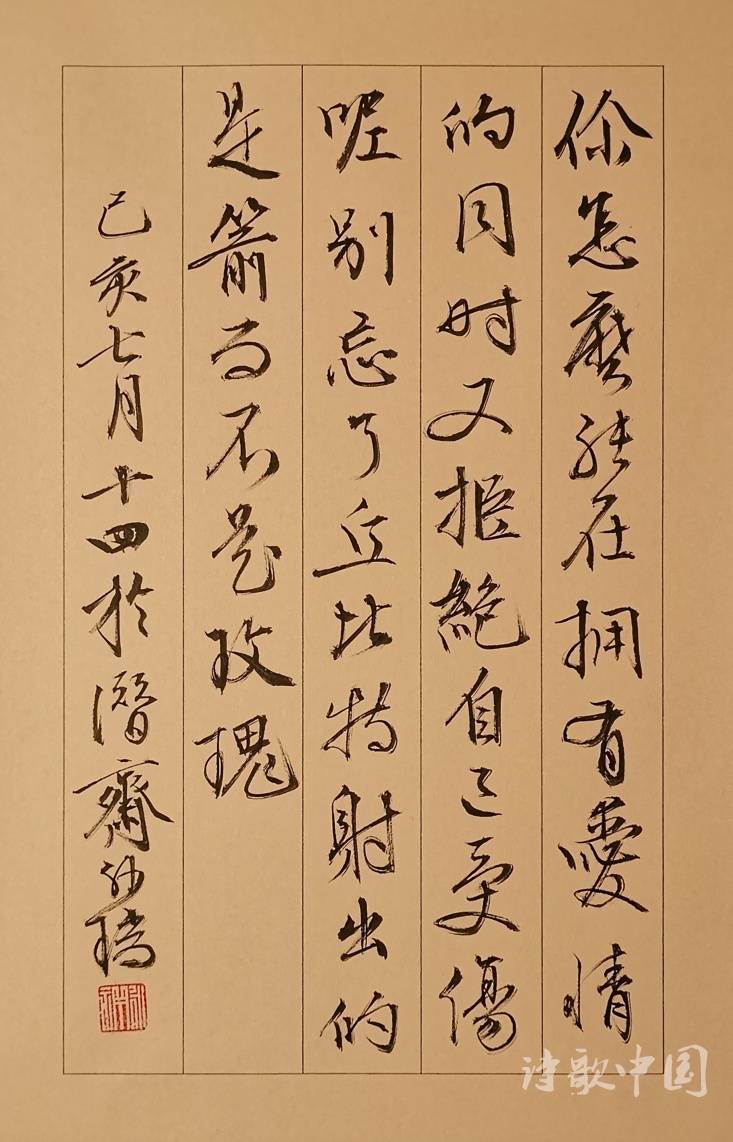 你怎麽能在拥有愛情
的同时又拒絕自己受傷
呢别忘了丘比特射出的
是箭而不是玫瑰
己亥七月十四於潛齋
诗歌中国